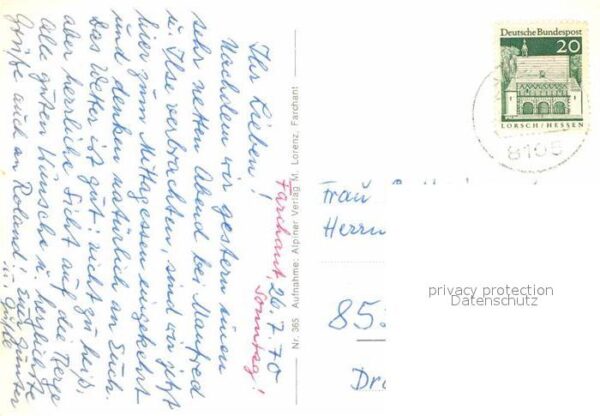 Farchant, 26.7.70
Sonntag!
Ihr Lieben!
Nachdem wir gestern einen
sehr netten Abend bei Manfred
u. Ilse verbrachten, sind wir jetzt
hier zum Mittagessen eingekehrt
und denken natürlich an Euch.
Das Wetter ist gut: nicht zu heiß,
aber herrliche Sicht auf die Berge
Alle guten Wünsche u. herzlichste
Grüße auch an Roland! Euer Günter
u. Güße
Nr. 365 Aufnahme: Alpiner Verlag M. Lorenz, Farchant
Deutsche Bundespost
20
LORSCH/HESSEN
8105
Frau
Herrn
privacy protection
Datenschutz
85